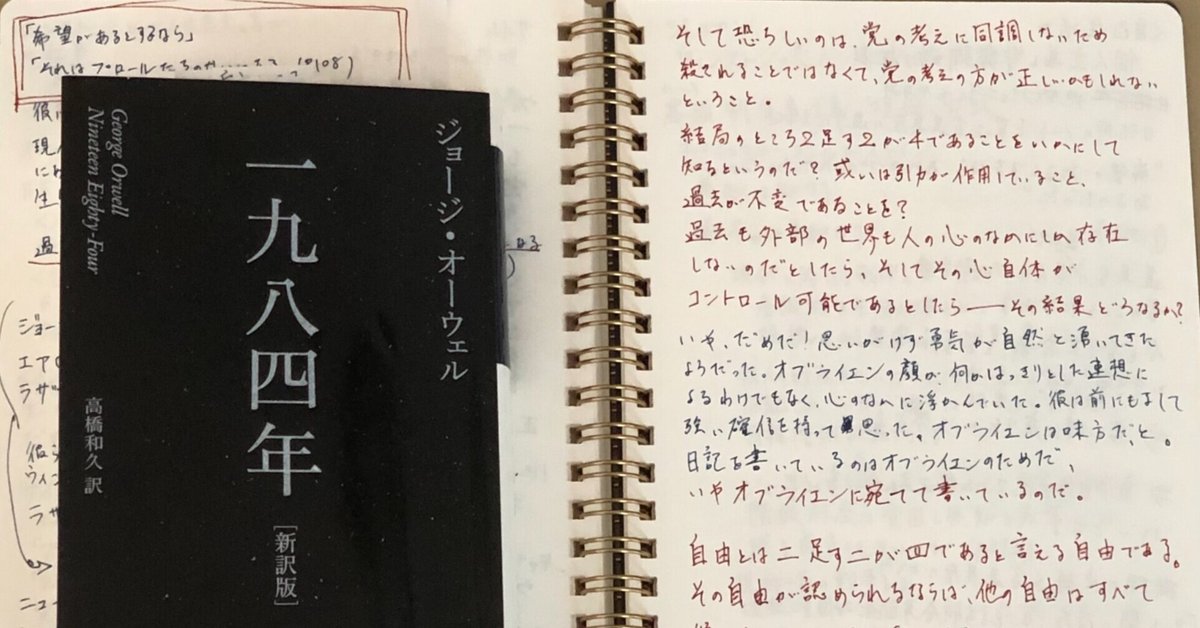 「希望があるとするなら」
「それはプロールたちの
彼
現
に
生
過
ジョー
エア
ラザ
彼ら
ウィン
ラザ
ニュー
George Orwell
Nineteen Eighty-Four
ジョージ・オーウェル
一九八四年
[新訳版]
高橋和久 訳
そして恐ろしいのは、党の考えに同調しないため
殺されることではなくて、党の考えの方が正しいかもしれない
ということ。
結局のところ2足す2が4であることをいかにして
知るというのだ? 或いは引力が作用していること、
過去が不変であることを?
過去も外部の世界も人の心のなかにしか存在
しないのだとしたら、そしてその心自体が
コントロール可能であるとしたら――その結果どうなるか?
いや、だめだ! 思いがけず勇気が自然と湧いてきた
ようだった。オブライエンの顔が、何かはっきりとした連想に
よるわけでもなく、心のなかに浮かんでいた。彼は前にもまして
強い確信を持って思った。オブライエンは味方だ、と。
日記を書いているのはオブライエンのためだ、
いやオブライエンに宛てて書いているのだ。
自由とは二足す二が四であると言える自由である。
その自由が認められるならば、他の自由はすべて